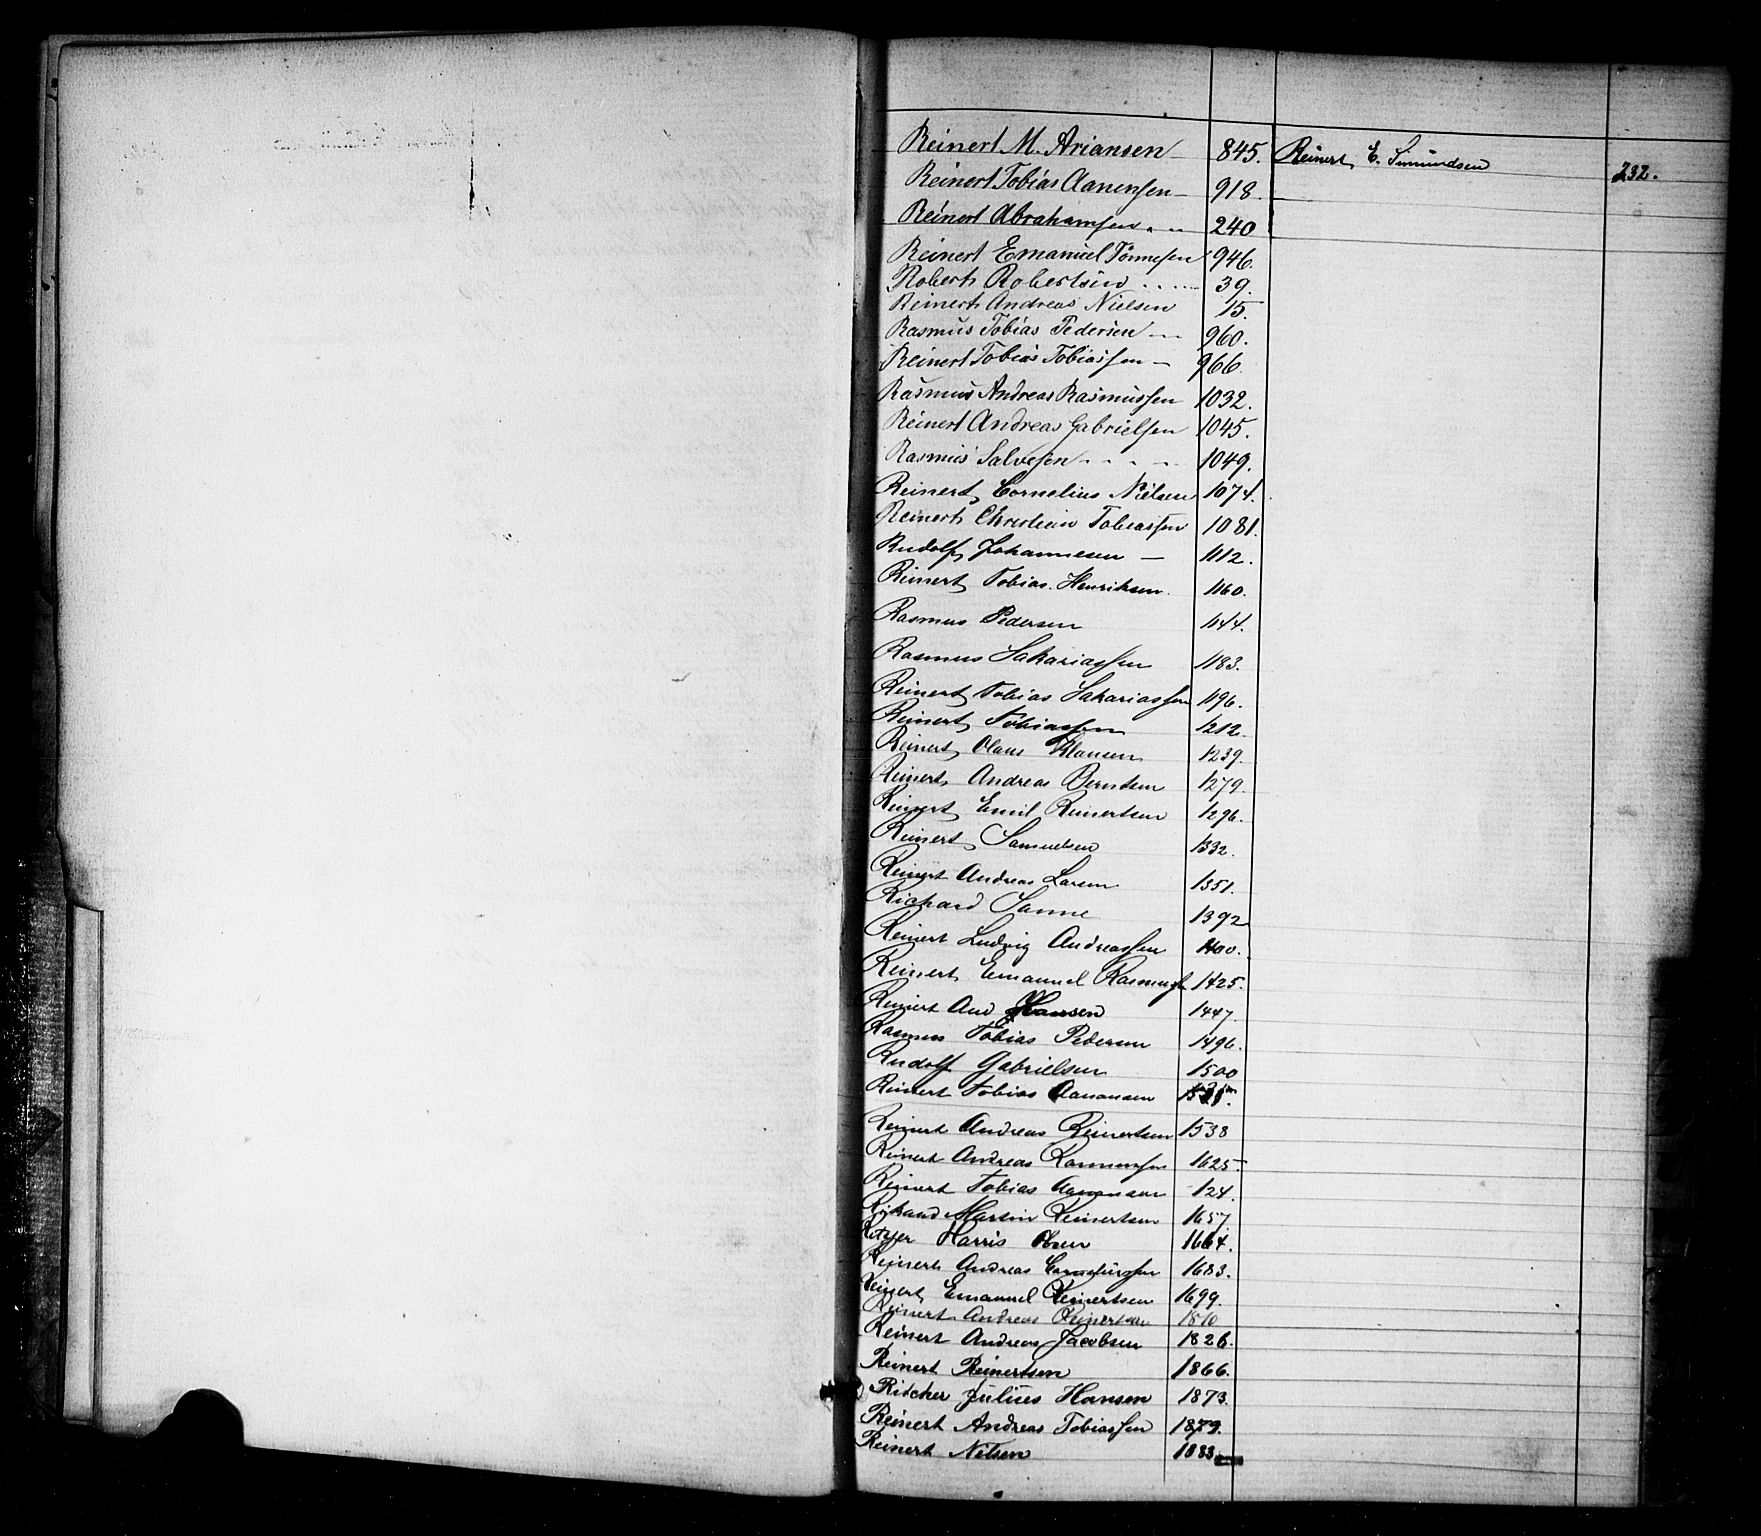 Reinert M. Ariansen 845. Reinert E. Simundsen 232.
Reinert Tobias Aanensen 918.
Reinert Abrahamsen 240
Reinert Emanuel Tönnesen 946.
Robert Robertsen 39.
Reinert Andreas Nielsen 15.
Rasmus Tobias Pedersen 960.
Reinert Tobias Tobiassen 966.
Rasmus Andreas Rasmussen 1032.
Reinert Andreas Gabrielsen 1045.
Rasmus Salvesen 1049.
Reinert Cornelius Nielsen 1074.
Reinert Christian Tobiassen 1081.
Rudolf Johannesen 1112.
Reinert Tobias Henriksen 1160.
Rasmus Pedersen 1144.
Rasmus Sakariassen 1183.
Reinert Tobias Sakariassen 1196.
Reinert Tobiassen 1212.
Reinert Olaus Klausen 1239.
Reinert Andreas Berntsen 1279.
Reinert Emil Reinertsen 1296.
Reinert Samuelsen 1332.
Reinert Andreas Larsen 1351.
Richard Sanne 1392
Reinert Ludvig Andreassen 1400.
Reinert Emanuel Rasmuss 1425.
Reinert And Hansen 1447.
Rasmus Tobias Pedersen 1496.
Rudolf Gabrielsen 1500
Reinert Tobias Aanonsen
Reinert Andreas Reinertsen 1538
Reinert Andreas Rasmussen 1625
Reinert Tobias Aanonsen 124.
Rikard Martin Reinertsen 1657.
Harris Olsen 1664.
Reinert Andreas Corneliussen 1683.
Reinert Emanuel Reinertsen 1699.
Reinert Andreas Reinertsen 1810
Reinert Andreas Jacobsen 1826.
Reinert Reinertsen 1866.
Ritcher Julius Hansen 1873.
Reinert Andreas Tobiassen 1879.
Reinert Nilsen 1883